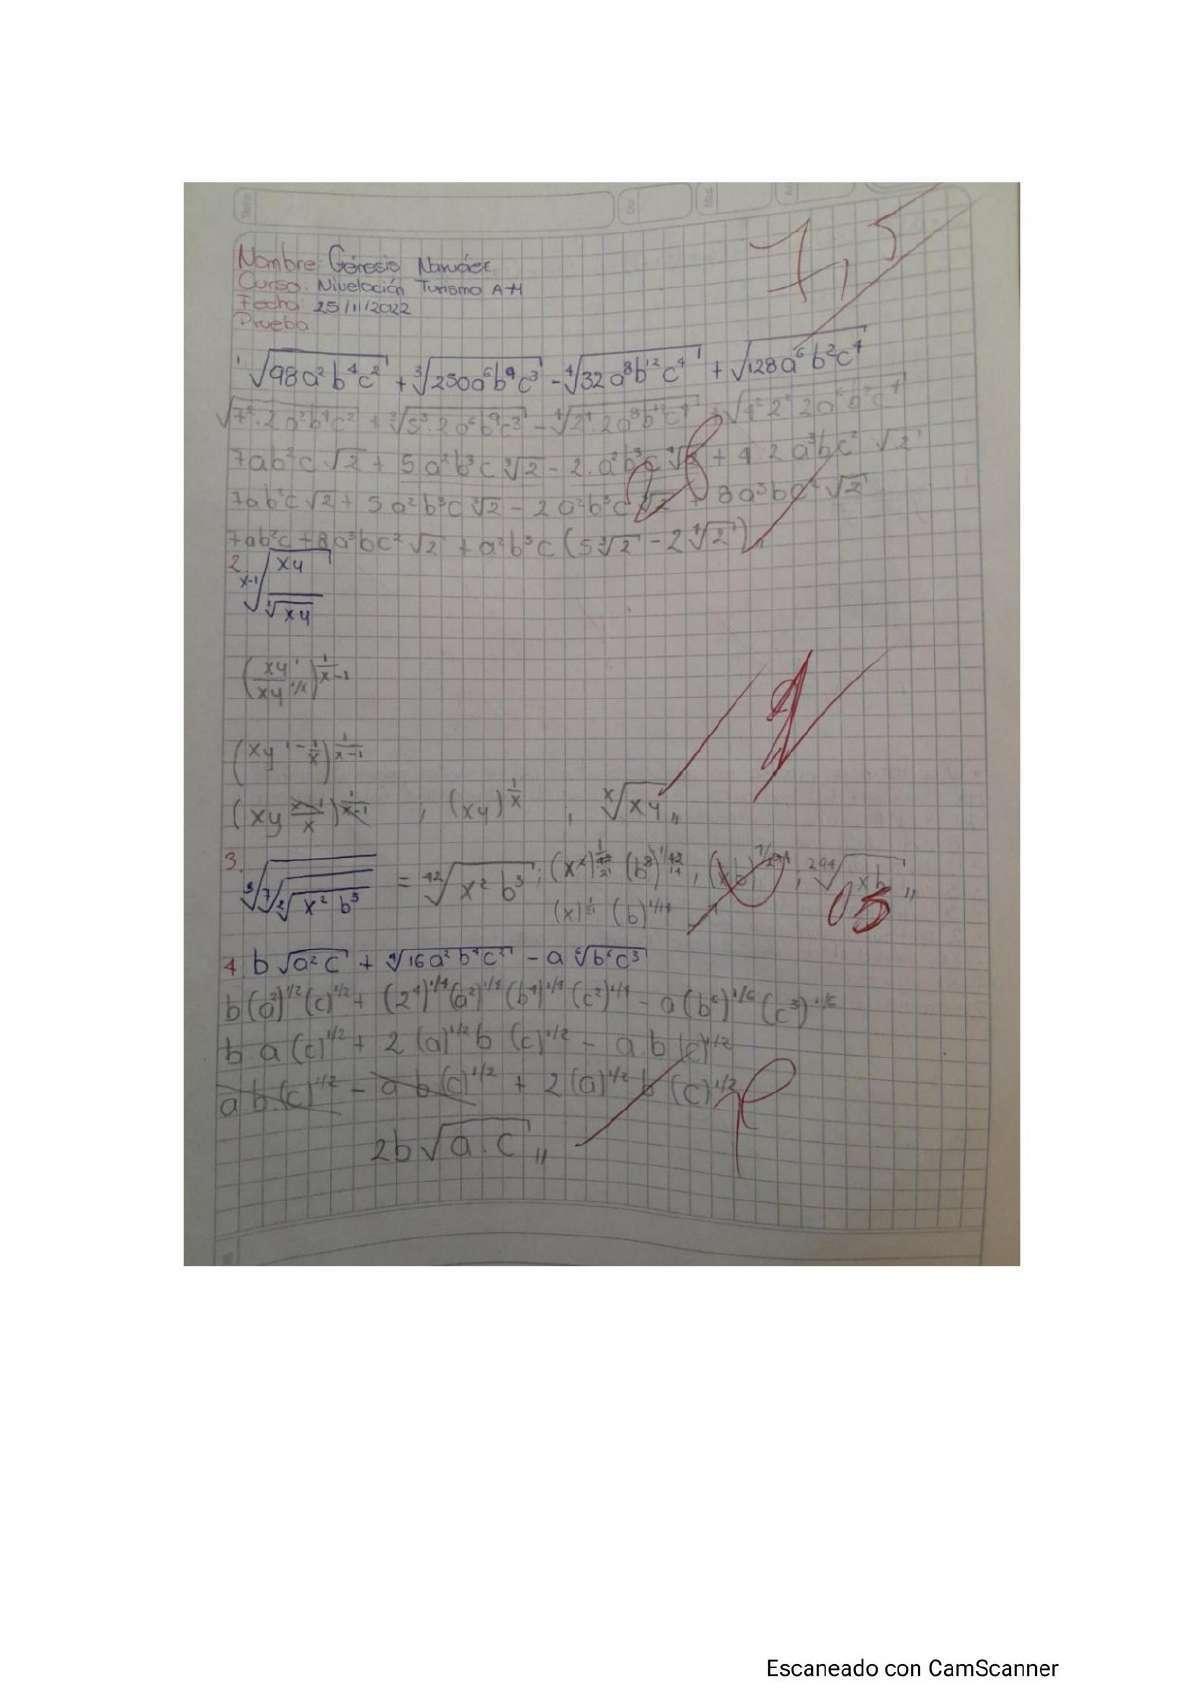 7,5
Nombre: Génesis Narváez
Curso: Nivelación Turismo A-H
Fecha 25/11/2022
Prueba
1 √(98a²b⁴c²) + ∛(250a⁶b⁹c³) - ∜(32a⁸b¹²c⁴) + √(128a⁶b²c⁴)
√(7²·2a²b⁴c²) + ∛(5³·2a⁶b⁹c³) - ∜(2⁴·2a⁸b¹²c⁴) + √(4²2²2a⁶b²c⁴)
7ab²c√2 + 5a²b³c∛2 - 2·a²b³c∜2 + 4·2a³bc²√2
7ab²c√2 + 5a²b³c∛2 - 2a²b³c∜2 + 8a³bc²√2
7ab²c + 8a³bc²√2 + a²b³c(5∛2 - 2∜2)
2. ˣ⁻¹√(xy / ˣ√(xy))
(xy¹ / xy^(1/x))^(1/(x-1))
(xy^(1-1/x))^(1/(x-1))
(xy^((x-1)/x))^(1/(x-1)) , (xy)^(1/x) , ˣ√(xy) „
3. ∛(⁷√(²√(x²b³))) = ⁴²√(x²b³) ;
05
4 b√(a²c) + ∜(16a²b⁴c²) - a⁶√(b⁶c³)
b(a²)^1/2(c)^1/2 + (2⁴)^1/4(a²)^1/4(b⁴)^1/4(c²)^1/4 - a(b⁶)^1/6(c³)^1/6
b a(c)^1/2 + 2(a)^1/2 b(c)^1/2 - a b(c)^1/2
a b(c)^1/2 - a b(c)^1/2 + 2(a)^1/2 b(c)^1/2
2b√(a·c) „
Escaneado con CamScanner